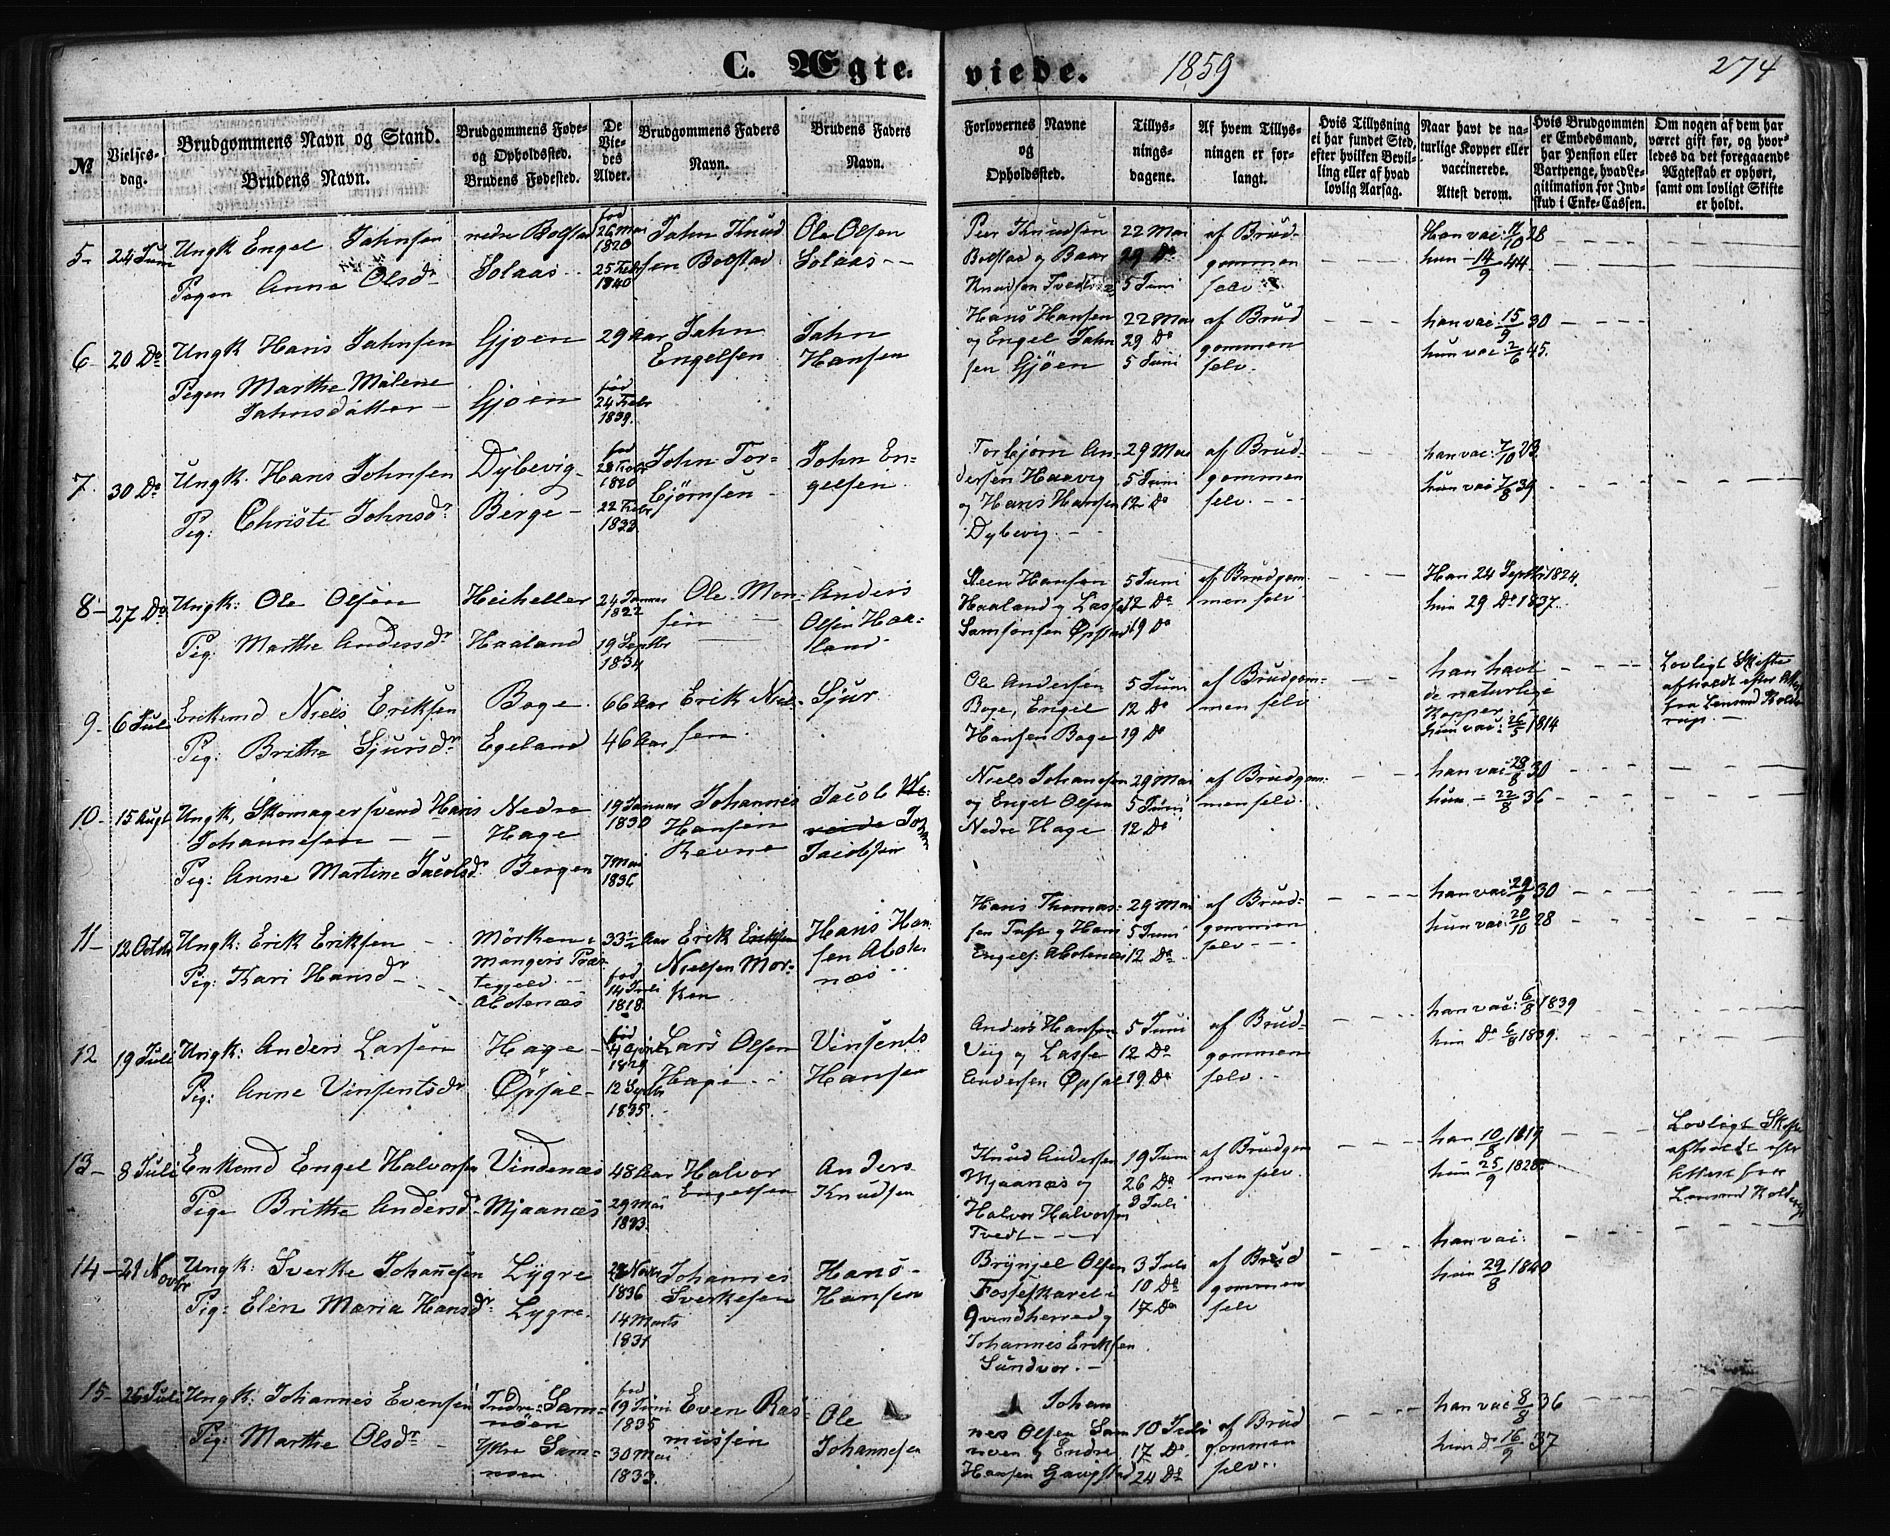 C. Ægte-
viede.
1859
274
№
Vielses-
dag.
Brudgommens Navn og Stand.
Brudens Navn.
Brudgommens Føde-
og Opholdssted.
Brudens Fødested.
De
Vie-
des
Alder.
Brudgommens Faders
Navn.
Brudens Faders
Navn.
Forlovernes Navne
og
Opholdssted.
Tillys-
nings-
dagene.
Af hvem Tillys-
ningen er for-
langt.
Hvis Tillysning
ei har fundet Sted,
efter hvilken Bevil-
ling eller af hvad
lovlig Aarsag.
Naar havt de na-
turlige Kopper eller
vaccinerede.
Attest derom.
Hvis Brudgommen
er Embedsmand,
har Pension eller
Vartpenge, hvad Le-
gitimation for Ind-
skud i Enke-Cassen.
Om nogen af dem har
været gift før, og hvor-
ledes da det foregaaende
Ægteskab er ophørt,
samt om lovligt Skifte
er holdt.
5- 24 Juni
Ungk Engel Jahnsen
Pigen Anna Olsdr
nedre Bolstad
Solaas
fød
26 Mai
1820
25 Febr
1840
Jahn Knud
sen Bolstad
Ole Olsen
Solaas
Peer Knudsen
Bolstad og Baar
Knudsen
22 Mai
29 Do
5 Juni
af Brud-
gommen
selv
Han vac: 2/10 28
hun - 14/9 44
6- 20 Do
Ungk Hans Jahnsen
Pigen Marthe Malene
Jahnsdatter
Gjøen
Gjøen
29 Aar
fød
24 Febr
1839.
Jahn
Engelsen
Jahn
Hansen
Hans Hansen
og Engel Jahn
sen Gjøen
22 Mai
29 Do
5 Juni
af Brud
gommen
selv.
han vac: 15/9 30
hun vac: 2/6 45.
7- 30 Do
Ungk. Hans Johnsen
Pig: Christi Johnsdr
Dybevig
Berge
fød
28 Febr
1820
22 Febr
1833
John Tor-
bjørnsen
John En-
gelsen
Torbjørn An-
dersen Haavig
og Hans Hansen
Dybevig.
29 Mai
5 Juni
12 Do
af Brud-
gommen
selv
han vac: 7/10 23
hun vac 7/8 39
8- 27 Do
Ungk: Ole Olsen
Pig: Marthe Andersdr
Heiheller
Haaland
24 Januar
1822
19 Septbr
1834
Ole Mon-
sen
Anders
Olsen Haa-
land
Steen Hansen
Haaland og Lasse
Samsonsen Øpstad
5 Juni
12 Do
19 Do
af Brudgom-
men selv
Han 24 Septbr 1824.
hun 29 Do 1837.
9- 6 Juli
Enkemd Niels Eriksen
Pig: Brithe Sjursdr
Boge
Egeland
66 Aar
46 Aar
Erik Niel-
sen
Sjur
Ole Andersen
Boge, Engel
Hansen Boge
5 Juni
12 Do
19 Do
af Brudgom-
men selv
han havt
de naturlige
Kopper.
hun vac: 26/5 1814
Lovligt Skifte
afholdt efter
fra Lensmd Kolde
rup.
10- 15 Augt
Ungk, Skomagersvend Hans
Johannesen
Pig: Anne Martine Jacobsdr
Nedre
Hage
Bergen
19 Januar
1830
7 Mai
1836
Johannes
Hansen
Revne
Jacob
Jacobsen
Niels Johannesen
og Engel Olsen
Nedre Hage
29 Mai
5 Juni
12 Do
af Brudgom-
men selv
han vac 28/8 30
hun - 22/8 36
11- 12 Octbr
Ungk: Erik Eriksen
Pig: Kari Hansdr
Mørken i
Mangers Præ-
stegjeld
Aldenæs
33½ Aar
fød
14 Juli
1818.
Erik Eriksen
Nielsen Mør-
ken
Hans Han
sen Alde
næs
Hans Thomas-
sen Tuft og Hans
Engels: Aldenæs
29 Mai
5 Juni
12 Do
af Brud-
gommen
selv
han vac: 29/9 30
hun vac: 20/10 28
12 19 Juli
Ungk: Anders Larsen
Pig: Anne Vinsentsdr
Hage
Øpsal
fød
4 April
1829
12 Septbr
1835
Lars Olsen
Hage
Vinsents
Hansen
Anders Hansen
Viig og Lasse
Andersen Øpsal
5 Juni
12 Do
19 Do
af Brud-
gommen
selv.
han vac: 6/8 1839
hun Do 6/8 1839.
13- 8 Juli
Enkemd Engel Halvorsen
Pige Brithe Andersdr
Vindenæs
Mjaanæs
48 Aar
29 Mai
1823.
Halvor
Engelsen
Anders
Knudsen
Knud Andersen
Mjaanæs og
Halvor Halvorsen
Tvedt
19 Juni
26 Do
3 Juli
af Brudgom
men selv.
han 10/8 1819
hun 25/9 1828
Lovligt Skifte
afholdt efter
Attest fra
Lensmd Kold
14- 29 Novbr
Ungk: Sverke Johannesen
Pig: Elen Maria Hansdr
Lygre
Lygre
1836
14 Marts
1831
Johannes
Sverkesen
Hans
Hansen
Brynjel Olsen
Fosseskaret i
Qvindherred og
Johannes Eriksen
Sundvor.
3 Juli
10 Do
17 Do
af Brud
gommen
selv
han vac:
hun 29/8 1840
15- 26 Juli
Ungk: Johannes Evensen
Pig: Marthe Olsdr
Indre Sam-
nøen
Ytre Sam-
nøen
fød
19 Juni
1835
30 Mai
1833.
Even Ras-
mussen
Ole
Johannesen
Johan
nes Olsen Sam
nøen og Endre
Hansen Gangstad
10 Juli
17 Do
24 Do
af Brud
gommen
selv.
han vac 8/8 36
hun do 16/9 37